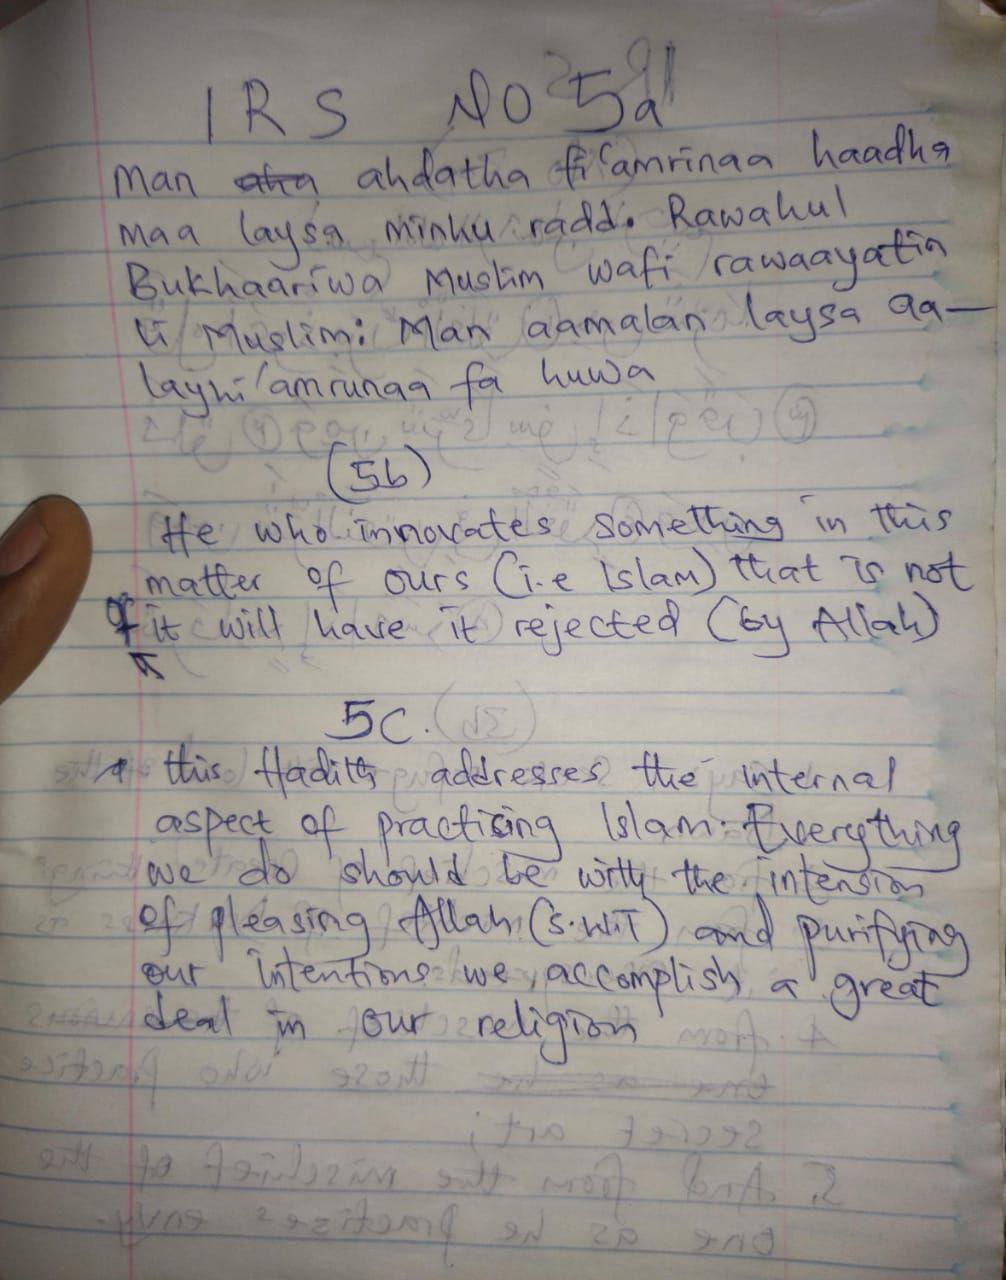 IRS NO 5a
Man ahdatha fi 'amrinaa haadha
maa laysa minhu radd. Rawahul
Bukhaariwa Muslim wafi rawaayatin
li Muslim: Man aamalan laysa aa-
layhi 'amrunaa fa huwa
(5b)
He who innovates something in this
matter of ours (i.e Islam) that is not
of it will have it rejected (by Allah)
5C.
this Hadith addresses the internal
aspect of practicing Islam. Everything
we do should be with the intension
of pleasing Allah (S.W.T) and purifying
our intentions we accomplish a great
deal in our religion